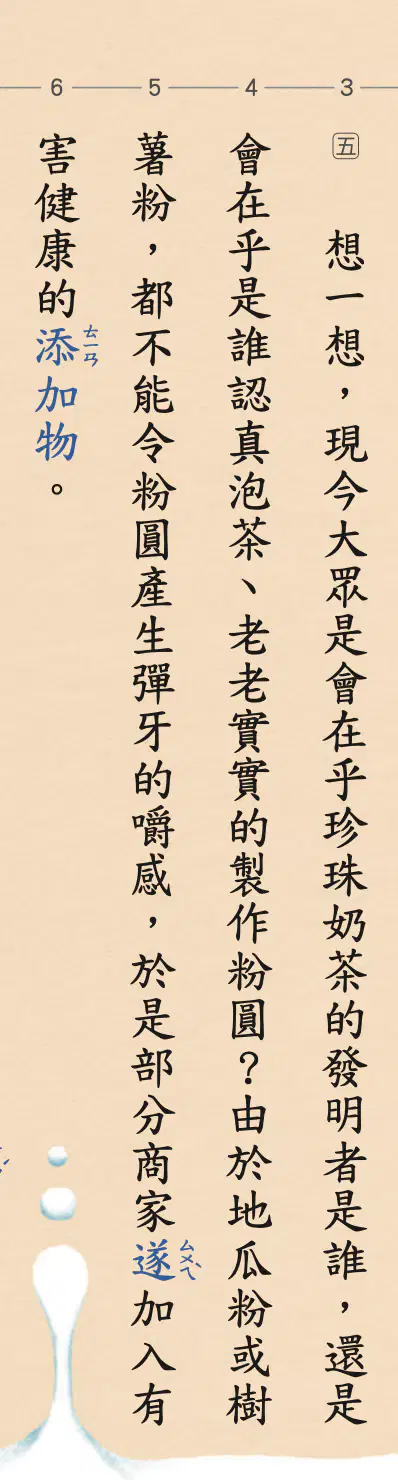 3
㊄ 想一想，現今大眾是會在乎珍珠奶茶的發明者是誰，還是
4
會在乎是誰認真泡茶、老老實實的製作粉圓？由於地瓜粉或樹
5
薯粉，都不能令粉圓產生彈牙的嚼感，於是部分商家遂ㄙㄨㄟˋ加入有
6
害健康的添ㄊㄧㄢ加物。